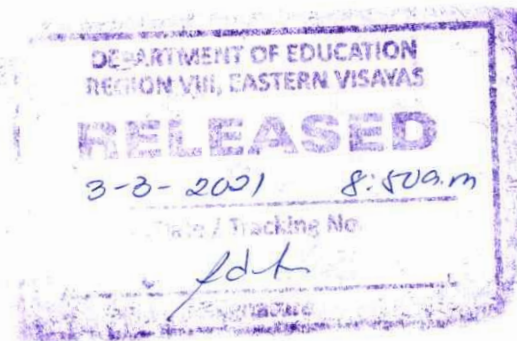 DEPARTMENT OF EDUCATION
REGION VIII, EASTERN VISAYAS
RELEASED
3-3-2021 8:50a.m
Date / Tracking No.
Signature